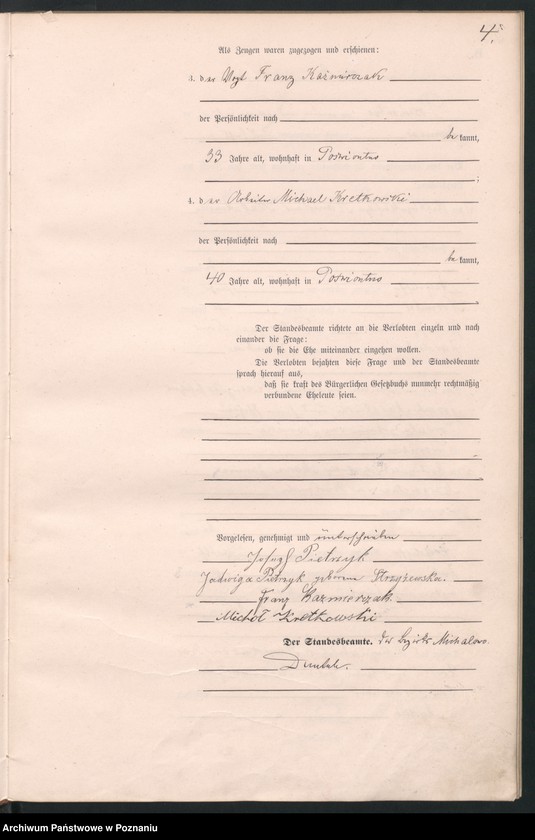 4.
Als Zeugen waren zugezogen und erschienen:
3. der Vogt Franz Kaźmierczak
der Persönlichkeit nach
be kannt,
33 Jahre alt, wohnhaft in
;
4. der Arbeiter Michael Kretkowski
der Persönlichkeit nach
be kannt,
40 Jahre alt, wohnhaft in
Der Standesbeamte richtete an die Verlobten einzeln und nach
einander die Frage:
ob sie die Ehe miteinander eingehen wollen.
Die Verlobten bejahten diese Frage und der Standesbeamte
sprach hierauf aus,
daß sie kraft des Bürgerlichen Gesetzbuchs nunmehr rechtmäßig
verbundene Eheleute seien.
Vorgelesen, genehmigt und unterschrieben
Josef Pietrzyk
Jadwiga Pietrzyk geborene Strzyżewska.
Franz Kaźmierczak
Michał Kretkowski
Der Standesbeamte. des Bezirks
Archiwum Państwowe w Poznaniu